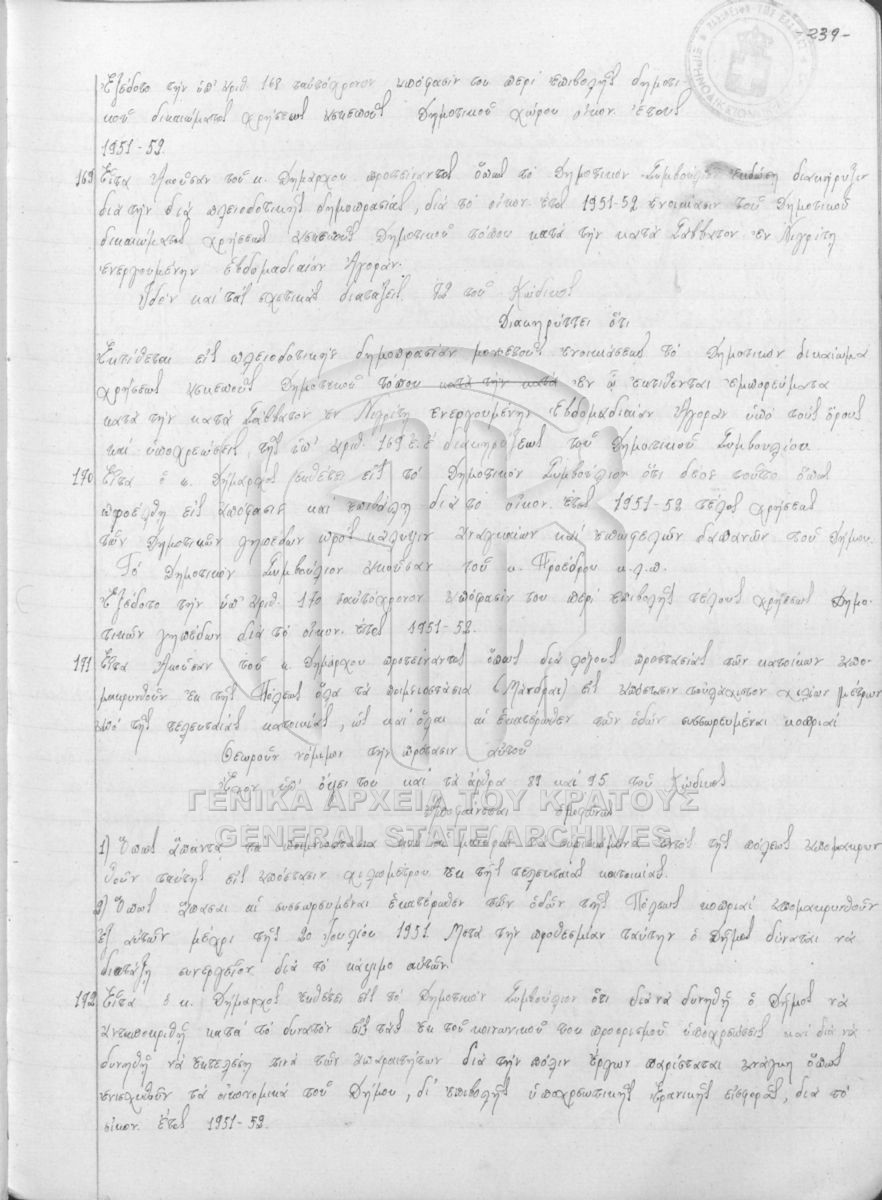 -239-
Ἐξέδοτο τὴν ὑπ' ἀριθ. 168 ταυτόχρονον ἀπόφασίν του περὶ ἐπιβολῆς δημοτι-
κοῦ δικαιώματος χρήσεως ἀσκεποῦς Δημοτικοῦ χώρου οἰκον. ἔτους
1951-52.
169 Εἶτα Ἀκοῦσαν τοῦ κ. Δημάρχου προτείναντος ὅπως τὸ Δημοτικὸν Συμβούλιον ἐκδώσῃ διακήρυξιν
διὰ τὴν διὰ πλειοδοτικῆς δημοπρασίας, διὰ τὸ οἰκον. ἔτος 1951-52 ἐνοικίασιν τοῦ Δημοτικοῦ
δικαιώματος χρήσεως ἀσκεποῦς Δημοτικοῦ τόπου κατὰ τὴν κατὰ Σάββατον ἐν Νιγρίτῃ
ἐνεργουμένην ἑβδομαδιαίαν Ἀγοράν.
Ἰδὸν καὶ τὰς σχετικὰς διατάξεις τοῦ Κώδικος
Διακηρύττει ὅτι
Ἐκτίθεται εἰς πλειοδοτικὴν δημοπρασίαν μονοετοῦς ἐνοικιάσεως τὸ Δημοτικὸν δικαίωμα
χρήσεως ἀσκεποῦς Δημοτικοῦ τόπου κατὰ τὴν κατὰ ἐν ᾧ ἐκτίθενται ἐμπορεύματα
κατὰ τὴν κατὰ Σάββατον ἐν Νιγρίτῃ ἐνεργουμένην Ἑβδομαδιαίαν Ἀγορὰν ὑπὸ τοὺς ὅρους
καὶ ὑποχρεώσεις τῆς ὑπ' ἀριθ. 169 ἐ.ἔ διακηρύξεως τοῦ Δημοτικοῦ Συμβουλίου
170 Εἶτα ὁ κ. Δήμαρχος ἐκθέτει εἰς τὸ Δημοτικὸν Συμβούλιον ὅτι δέον τοῦτο ὅπως
προέλθῃ εἰς ἀπόφασιν καὶ ἐπιβάλῃ διὰ τὸ οἰκον. ἔτος 1951-52 τέλος χρήσεως
τῶν Δημοτικῶν γηπέδων πρὸς κάλυψιν ἀναγκαίων καὶ ἐπωφελῶν δαπανῶν τοῦ Δήμου.
Τὸ Δημοτικὸν Συμβούλιον ἀκοῦσαν τοῦ κ. Προέδρου κ.λ.π.
Ἐξέδοτο τὴν ὑπ' ἀριθ. 170 ταυτόχρονον ἀπόφασίν του περὶ ἐπιβολῆς τέλους χρήσεως Δημο-
τικῶν γηπέδων διὰ τὸ οἰκον. ἔτος 1951-52.
171 Εἶτα Ἀκοῦσαν τοῦ κ. Δημάρχου προτείναντος ὅπως διὰ λόγους προστασίας τῶν κατοίκων ἀπο-
μακρυνθοῦν ἐκ τῆς Πόλεως ὅλα τὰ ποιμνιοστάσια (Μάνδραι) εἰς ἀπόστασιν τοὐλάχιστον χιλίων μέτρων
ἀπὸ τῆς τελευταίας κατοικίας, ὡς καὶ ὅλαι αἱ ἑκατέρωθεν τῶν ὁδῶν συσσωρευμέναι κοπριαί
Θεωροῦν νόμιμον τὴν πρότασιν αὐτοῦ
Ἔχον ὑπ' ὄψει του καὶ τὰ ἄρθρα 89 καὶ 95 τοῦ Κώδικος
Ἀποφαίνεται ὁμοφώνως
ΓΕΝΙΚΑ ΑΡΧΕΙΑ ΤΟΥ ΚΡΑΤΟΥΣ
GENERAL STATE ARCHIVES
1) Ὅπως ἅπαντα τὰ ποιμνιοστάσια ἐντὸς τῆς πόλεως ἀπομακρυν
θοῦν ταύτης εἰς ἀπόστασιν χιλιομέτρου ἐκ τῆς τελευταίας κατοικίας.
2) Ὅπως ἅπασαι αἱ συσσωρευμέναι ἑκατέρωθεν τῶν ὁδῶν τῆς Πόλεως κοπριαὶ ἀπομακρυνθοῦν
ἐξ αὐτῶν μέχρι τῆς 20 Ἰουλίου 1951. Μετὰ τὴν προθεσμίαν ταύτην ὁ Δῆμος δύναται νὰ
διατάξῃ συνεργεῖον διὰ τὸ κάψιμο αὐτῶν.
172 Εἶτα ὁ κ. Δήμαρχος ἐκθέτει εἰς τὸ Δημοτικὸν Συμβούλιον ὅτι διὰ νὰ δυνηθῇ ὁ Δῆμος νὰ
ἀνταποκριθῇ κατὰ τὸ δυνατὸν εἰς τὰς ἐκ τοῦ κοινωνικοῦ του προορισμοῦ ὑποχρεώσεις καὶ διὰ νὰ
δυνηθῇ νὰ ἐκτελέσῃ τινὰ τῶν ἀπαραιτήτων διὰ τὴν πόλιν ἔργων παρίσταται ἀνάγκη ὅπως
ἐνισχυθοῦν τὰ οἰκονομικὰ τοῦ Δήμου, δι' ἐπιβολῆς ὑποχρεωτικῆς ἐρανικῆς εἰσφορᾶς, διὰ τὸ
οἰκον. ἔτος 1951-52.